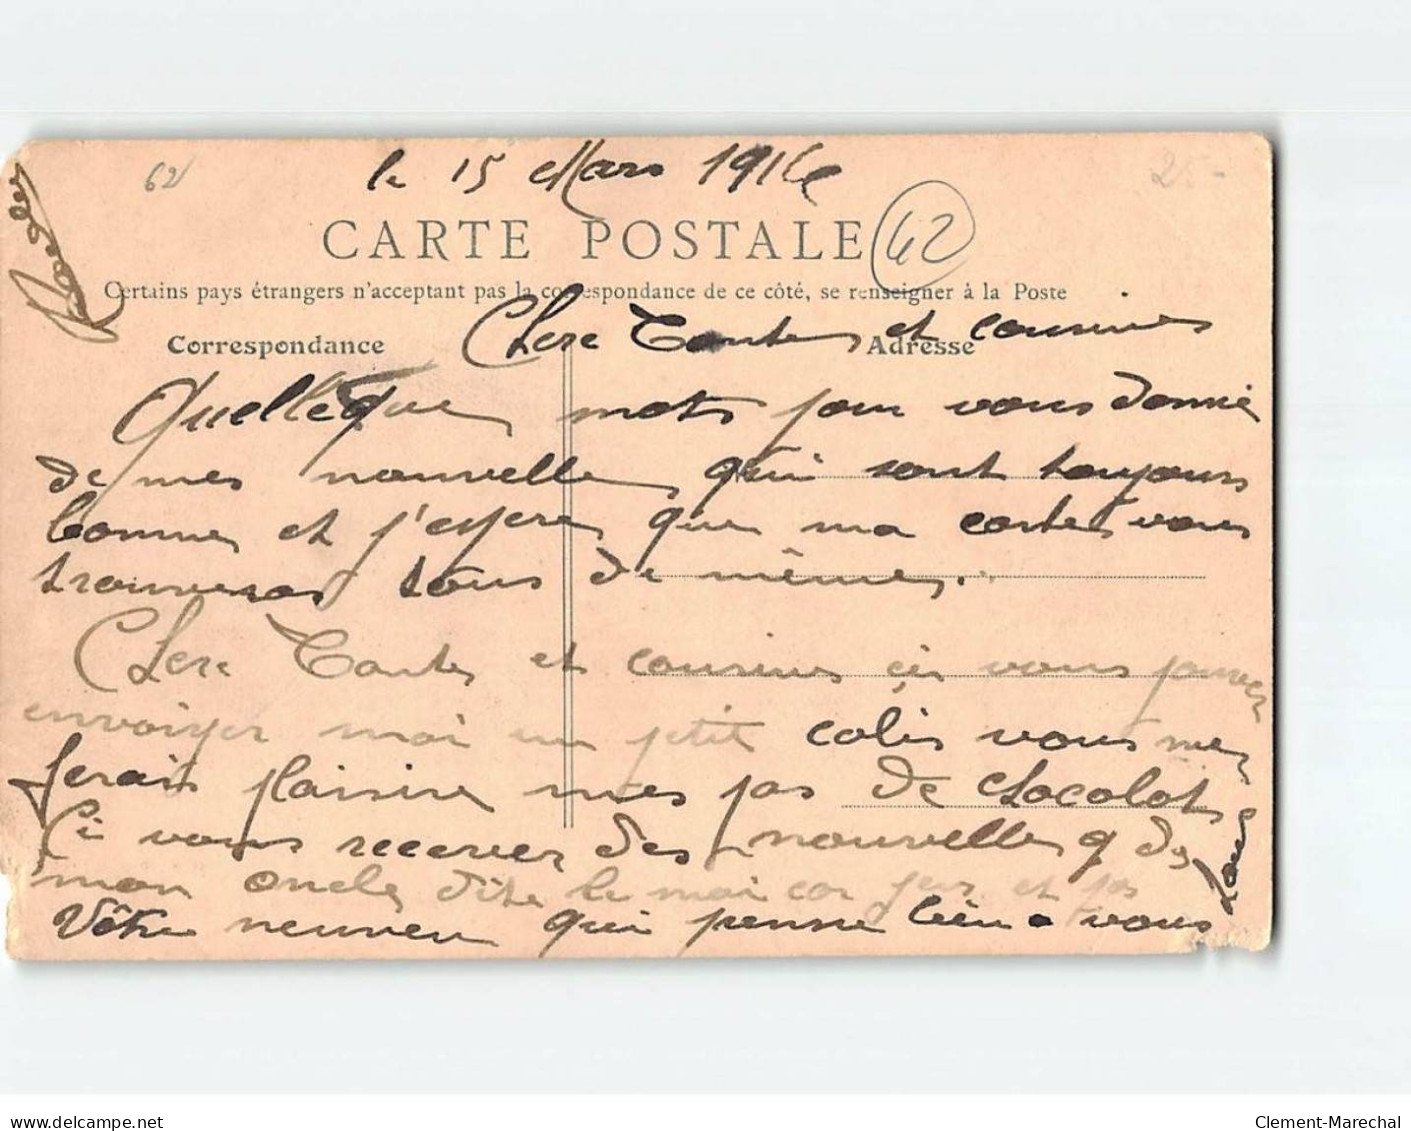 62
le 15 Mars 1916
25-
CARTE POSTALE
62
Certains pays étrangers n'acceptant pas la correspondance de ce côté, se renseigner à la Poste
Correspondance
Adresse
Chere Tantes et cousines
Quelleque mots pour vous donnie
de mes nouvelles qui sont toujours
bonnes et j'espere que ma cartes vous
trouveras tous de mêmes.
Chere Tantes et cousines ci vous pouvez
envoiyer moi un petit colis vous mes
ferais plaisire mes pas de chocolot
Ci vous recever des nouvelles de
mon oncle dite le moi car et pas
Vôtre neuveu qui penne bien a vous
tous
delcampe.net
Clement-Marechal